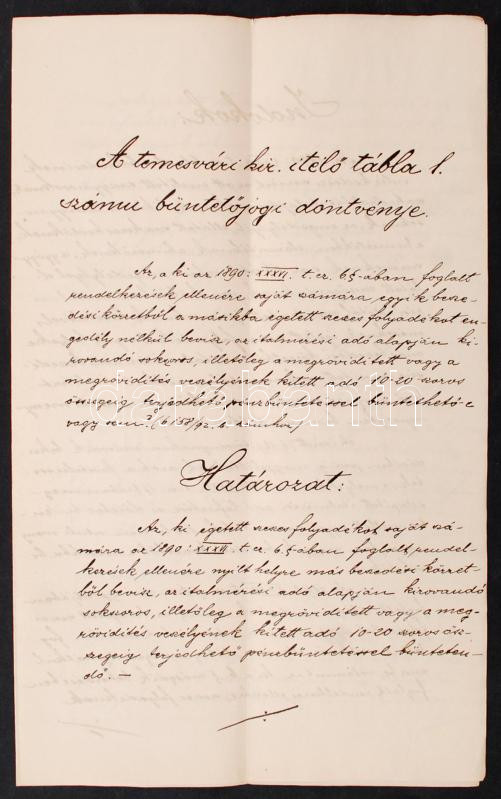 A temesvári kir. itélő tábla 1.
számu büntetőjogi döntvénye.
Az, a ki az 1890: XXXVI. t. cz. 6§-ában foglalt
rendelkezések ellenére saját számára, egyik besze-
dési körzetből a másikba égetett szeszes folyadékot en-
gedély nélkül bevisz, az italmérési adó alapján ki-
rovandó sokszoros, illetőleg a megrövidített vagy a
megrövidítés veszélyének kitett adó 10-20 szoros
összegeig terjedhető pénzbüntetéssel büntethető-e
vagy sem? (6158/92. számhoz)
Határozat:
Az, ki égetett szeszes folyadékot saját szá-
mára az 1890: XXXVI. t. cz. 6§-ában foglalt rendel-
kezések, ellenére nyilt helyre más beszedési körzet-
ből bevisz, az italmérési adó alapján kirovandó
sokszoros, illetőleg a megrövidített vagy a meg-
rövidítés veszélyének kitett adó 10-20 szoros ösz-
szegeig terjedhető pénzbüntetéssel bünteten-
dő. —
darabanth
Indokok: